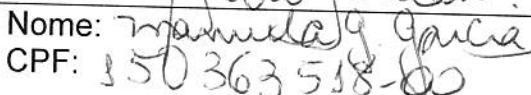 Nome: Manuela G. Garcia
CPF: 150363518-00